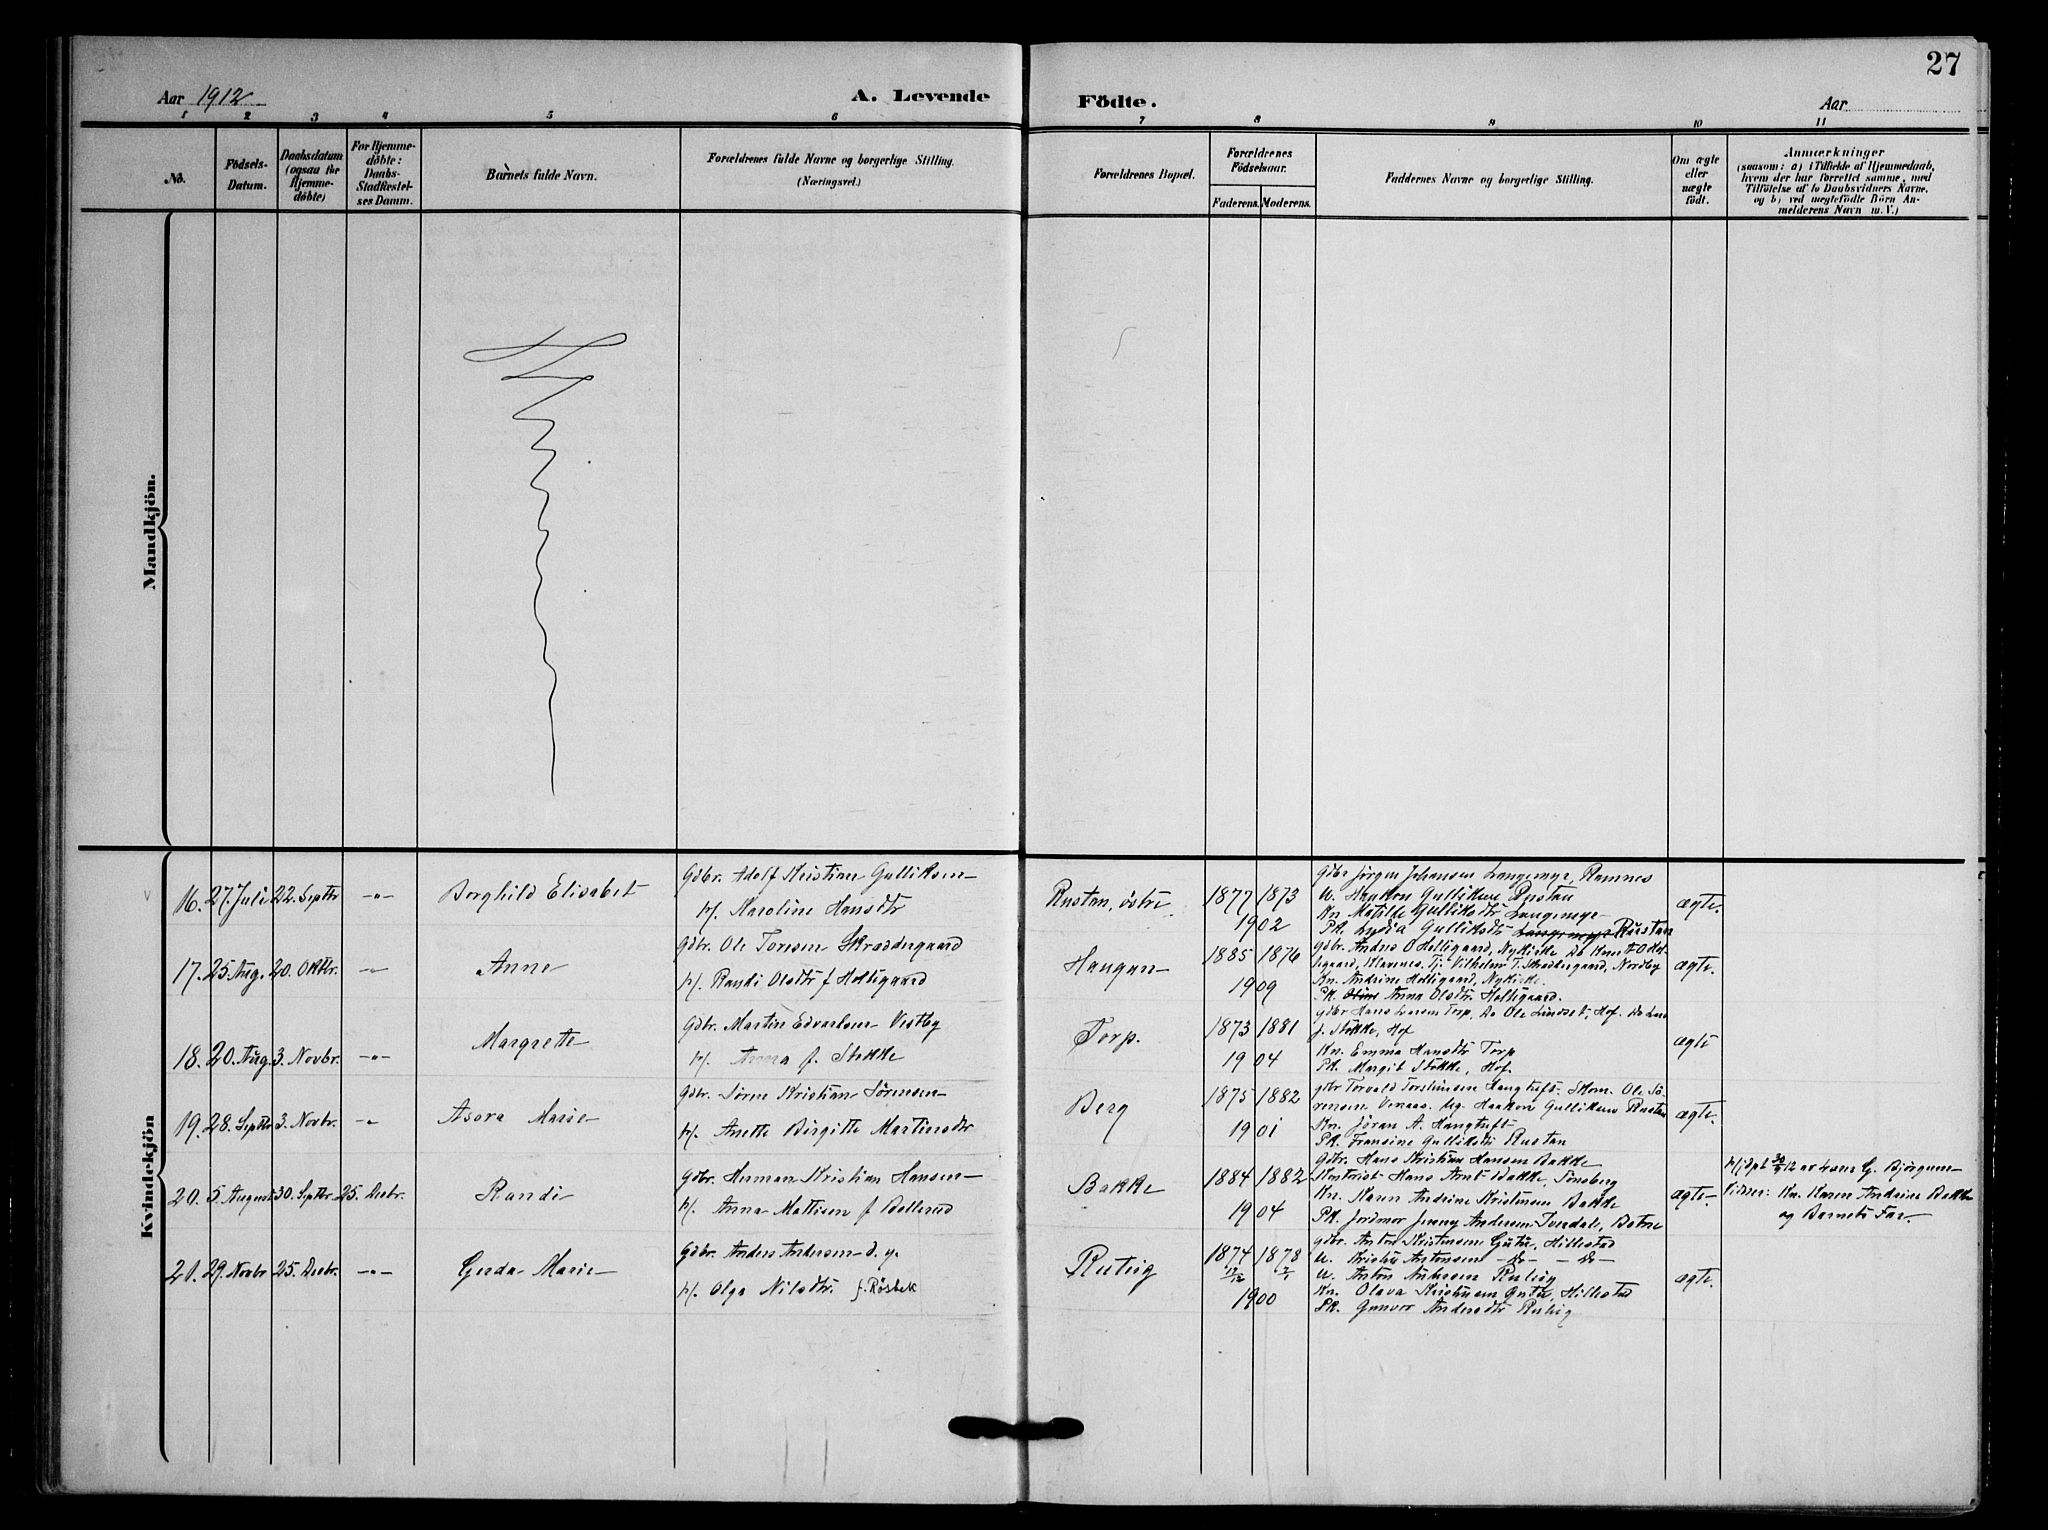 27
Aar 1912
A. Levende
Födte.
Aar
1 2 3 4 5 6 7 8 9 10 11
No.
Födsels-
Datum.
Daabsdatum
(ogsaa for
Hjemme-
döbte)
For Hjemme-
döbte:
Daabs-
Stadfæstel-
ses Datum.
Barnets fulde Navn.
Forældrenes fulde Navne og borgerlige Stilling.
(Næringsvei.)
Forældrenes Bopæl.
Forældrenes
Födselsaar.
Faderens. Moderens.
Faddernes Navne og borgerlige Stilling.
Om ægte
eller
uægte
födt.
Anmærkninger
(saasom: a) i Tilfælde af Hjemmedaab,
hvem der har forrettet samme, med
Tilföielse af to Daabsvidners Navne,
og b) ved uægtefödte Börn An-
melderens Navn m. V.)
Mandkjön.
Kvindekjön
16. 27. Juli 22. Septbr -"- Borghild Elisabet
Gdbr. Adolf Kristian Gulliksen
H/. Karoline Hansdtr
Rustan, östre
1877 1873
1902
Gdbr Jörgen Johansen Langemyr, Ramnes
U. Haakon Gulliksen Rustan
Kn. Matilde Gulliksdtr Langemyr
Pk. Lydia Gulliksdtr Langemyr Rustan
ægte.
17. 25. Aug. 20. Oktbr. -"- Anne
Gdbr. Ole Toresen Skræddergaard
H/. Randi Olsdtr f Helligaard
Haugan
1885 1876
1909
Gdbr. Andres O Helligaard, Nykirke Do Knut O Hel-
ligaard, Klavenes. Tj. Vilhelm T. Skræddergaard, Nordby
Kn. Andrine Helligaard, Nykirke.
Pk. Anna Olsdtr. Helligaard.
ægte.
18. 20. Aug. 3. Novbr. -"- Margrette
Gdbr. Martin Edvardsen Vestby
H/. Anna f. Stokke
Torp.
1873 1881
1904
Gdbr Hans Larsen Torp, Do Ole Lindset, Hof. Do Lars
J. Stokke, Hof
Kn. Emma Hansdtr Torp
Pk. Margit Stokke, Hof.
ægte
19. 28. Septbr 3. Novbr. -"- Asora Marie
Gdbr. Sören Kristian Sörensen
H/. Anette Birgitte Martinsdtr
Berg
1875 1882
1901
Gdbr Torvald Torstensen Haugtuft. Skom. Ole Sö-
rensen Ug. Haakon Gulliksen Rustan
Kn. Jöran A. Haugtuft
Pk. Fransine Gulliksdtr Rustan
ægte.
20. 5. August 30. Septbr. 25. Decbr. Randi
Gdbr. Herman Kristian Hansen
H/. Anna Mattisen f Bollerud
Bakke
1884 1882
1904
Gdbr. Hans Kristian Hansen Bakke
Kontorist Hans Arnt Bakke, Tönsberg
Kn. Karen Andrine Kristensen Bakke
Pk. Jordmor Jenny Andersen Tverdal, Botne
ægte
Hj.dpt 30/9 12 av Lærer G. Björgum
Vidner: Kn. Karen Andrine Bakke
og Barnets Far.
21. 29. Novbr 25. Decbr. -"- Gerda Marie
Gdbr. Anders Andersen d. y.
H/. Olga Nilsdtr. f. Røsbek
1874 1878
1900
Gdbr. Anton Kristensen Gutu, Hillestad
U. Kristen Antonsen -Do- -Do-
U. Anton Andersen
Kn. Olava Kristensen Gutu, Hillestad
Pk. Gunvor Andersdtr
ægte.